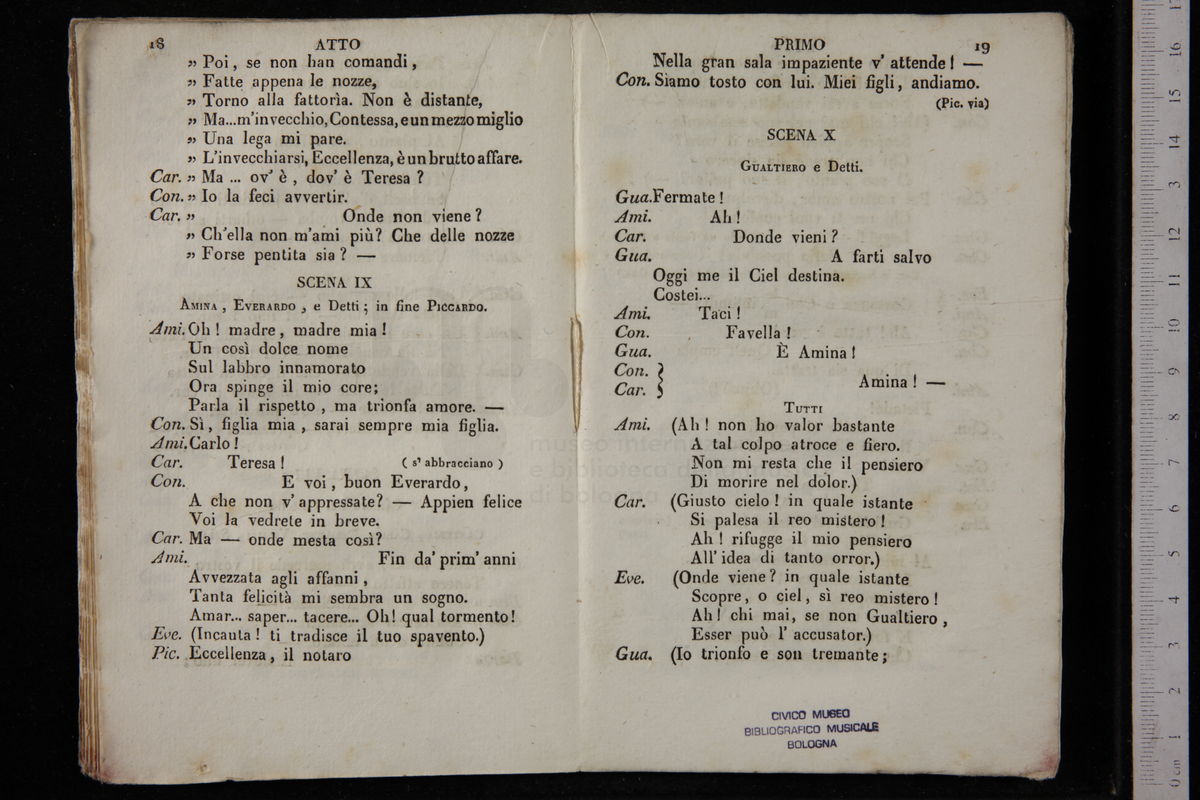 18 ATTO
„ Poi, se non han comandi,
„ Fatte appena le nozze,
„ Torno alla fattorìa. Non è distante,
„ Ma...m'invecchio, Contessa, e un mezzo miglio
„ Una lega mi pare.
„ L'invecchiarsi, Eccellenza, è un brutto affare.
Car. „ Ma ... ov' è, dov' è Teresa?
Con. „ Io la feci avvertir.
Car. „ Onde non viene?
„ Ch'ella non m'ami più? Che delle nozze
„ Forse pentita sia? —
SCENA IX
AMINA, EVERARDO, e Detti; in fine PICCARDO.
Ami. Oh! madre, madre mia!
Un così dolce nome
Sul labbro innamorato
Ora spinge il mio core;
Parla il rispetto, ma trionfa amore. —
Con. Sì, figlia mia, sarai sempre mia figlia.
Ami. Carlo!
Car. Teresa! (s' abbracciano)
Con. E voi, buon Everardo,
A che non v' appressate? — Appien felice
Voi la vedrete in breve.
Car. Ma — onde mesta così?
Ami. Fin da' prim' anni
Avvezzata agli affanni,
Tanta felicità mi sembra un sogno.
Amar... saper... tacere... Oh! qual tormento!
Eve. (Incauta! ti tradisce il tuo spavento.)
Pic. Eccellenza, il notaro
PRIMO 19
Nella gran sala impaziente v' attende! —
Con. Siamo tosto con lui. Miei figli, andiamo.
(Pic. via)
SCENA X
GUALTIERO e Detti.
Gua. Fermate!
Ami. Ah!
Car. Donde vieni?
Gua. A farti salvo
Oggi me il Ciel destina.
Costei...
Ami. Taci!
Con. Favella!
Gua. È Amina!
Con. }
Car. } Amina! —
TUTTI
Ami. (Ah! non ho valor bastante
A tal colpo atroce e fiero.
Non mi resta che il pensiero
Di morire nel dolor.)
Car. (Giusto cielo! in quale istante
Si palesa il reo mistero!
Ah! rifugge il mio pensiero
All' idea di tanto orror.)
Eve. (Onde viene? in quale istante
Scopre, o ciel, sì reo mistero!
Ah! chi mai, se non Gualtiero,
Esser può l' accusator.)
Gua. (Io trionfo e son tremante;
CIVICO MUSEO
BIBLIOGRAFICO MUSICALE
BOLOGNA
museo interna
e biblioteca d
di bologna
0 cm 1 2 3 4 5 6 7 8 9 10 11 12 13 14 15 16 17